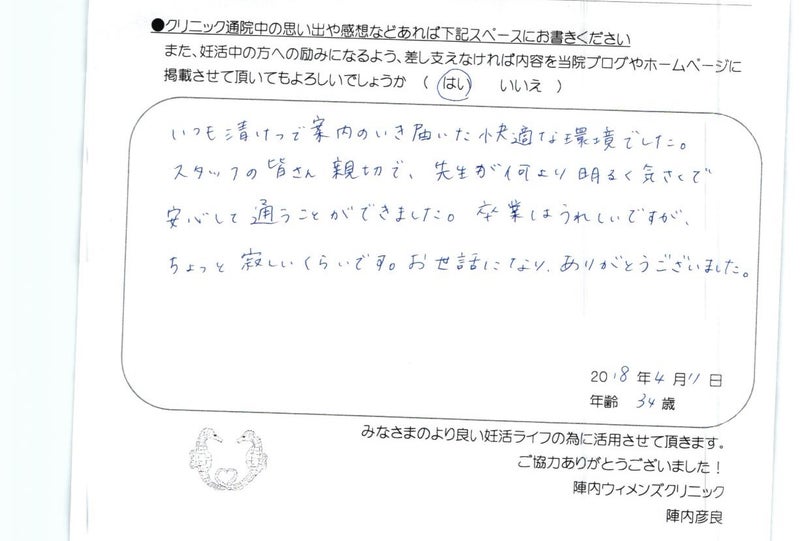 ●クリニック通院中の思い出や感想などあれば下記スペースにお書きください
また、妊活中の方への励みになるよう、差し支えなければ内容を当院ブログやホームページに
掲載させて頂いてもよろしいでしょうか （ はい いいえ ）
いつも清けつで案内のいき届いた快適な環境でした。
スタッフの皆さん親切で、先生が何より明るく気さくで
安心して通うことができました。卒業はうれしいですが、
ちょっと寂しいくらいです。お世話になり、ありがとうございました。
2018年4月11日
年齢 34歳
みなさまのより良い妊活ライフの為に活用させて頂きます。
ご協力ありがとうございました！
陣内ウィメンズクリニック
陣内彦良